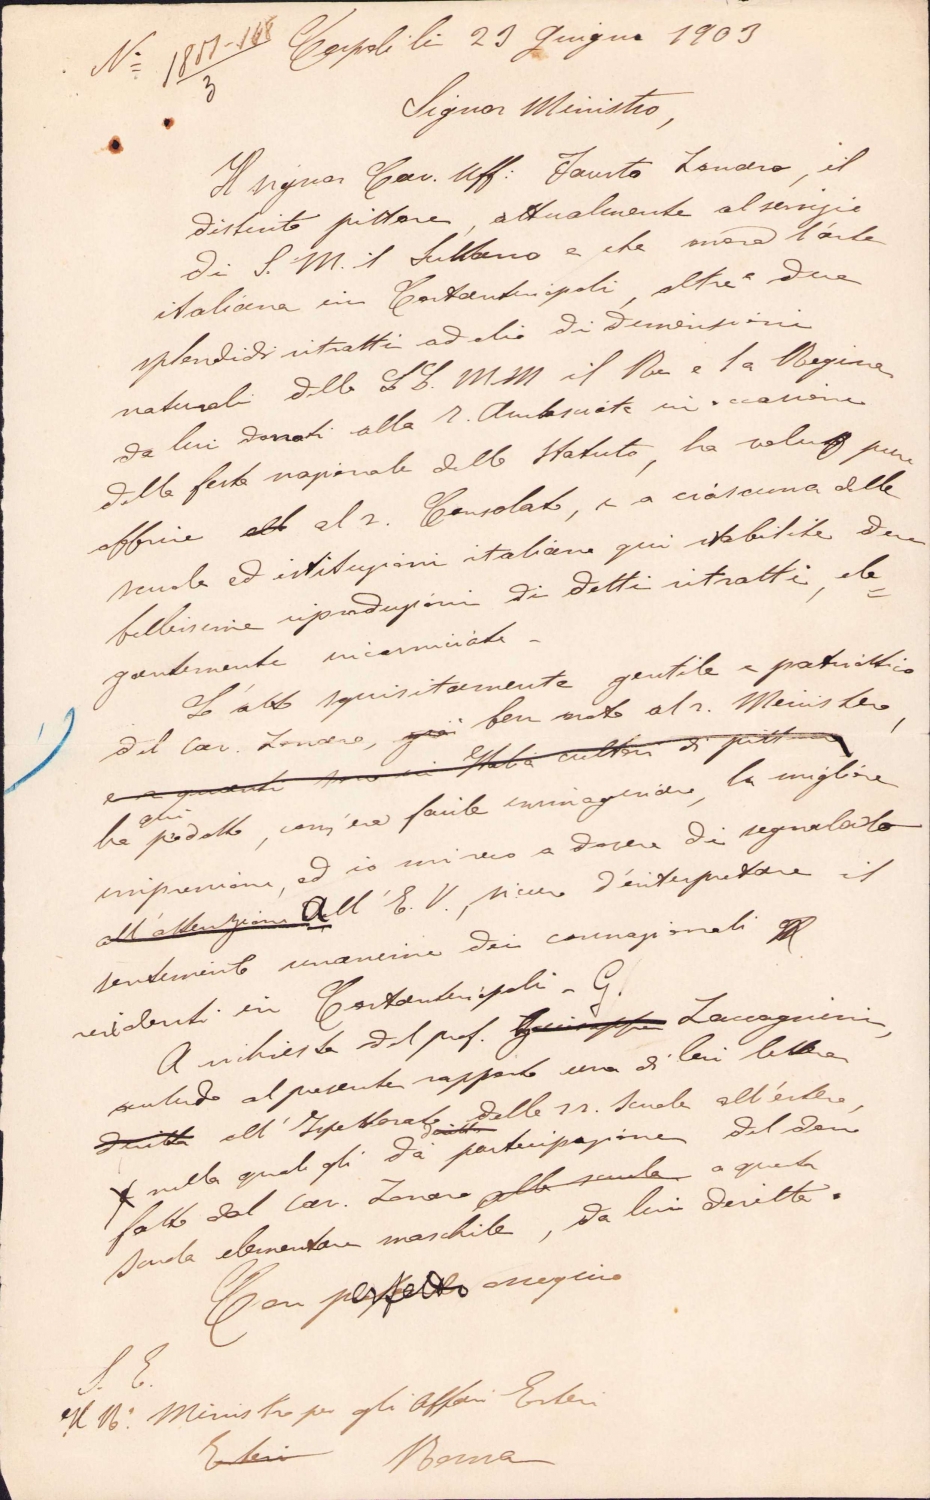 N.º 1851-168/3 C.poli li 23 Giugno 1903
Signor Ministro,
Il signor Cav. Uff: Fausto Zonaro, il
distinto pittore, attualmente al servizio
di S. M. il Sultano e che onora l'arte
italiana in Costantinopoli, oltre a due
splendidi ritratti ad olio di dimensioni
naturali delle LL. MM il Re e la Regina
da lui donati alla r. Ambasciata in occasione
della festa nazionale dello Statuto, ha voluto pure
offrire al r. Consolato, e a ciascuna delle
scuole ed istituzioni italiane qui stabilite due
bellissime riproduzioni di detti ritratti, ele=
gantemente incorniciate -
L'atto squisitamente gentile e patriottico
del cav. Zonaro, già ben noto al r. Ministero,
e a quanti sono in Italia cultori di pittura
ha qui prodotto, com'era facile immaginare, la migliore
impressione, ed io mi reco a dovere di segnalarlo
all'attenzione All' E. V., sicuro d'interpretare il
sentimento unanime dei connazionali
residenti in Costantinopoli -
A richiesta del prof. Giuseppe G. Zaccagnini,
unisco al presente rapporto una di lui lettera
diretta all'Ispettorato delle rr. Scuole all'estero,
nella quale gli dà partecipazione del dono
fatto dal cav. Zonaro alle scuole a questa
scuola elementare maschile, da lui diretta.
Con perfetto ossequio
S. E.
Il R.º Ministro per gli Affari Esteri
Esteri Roma